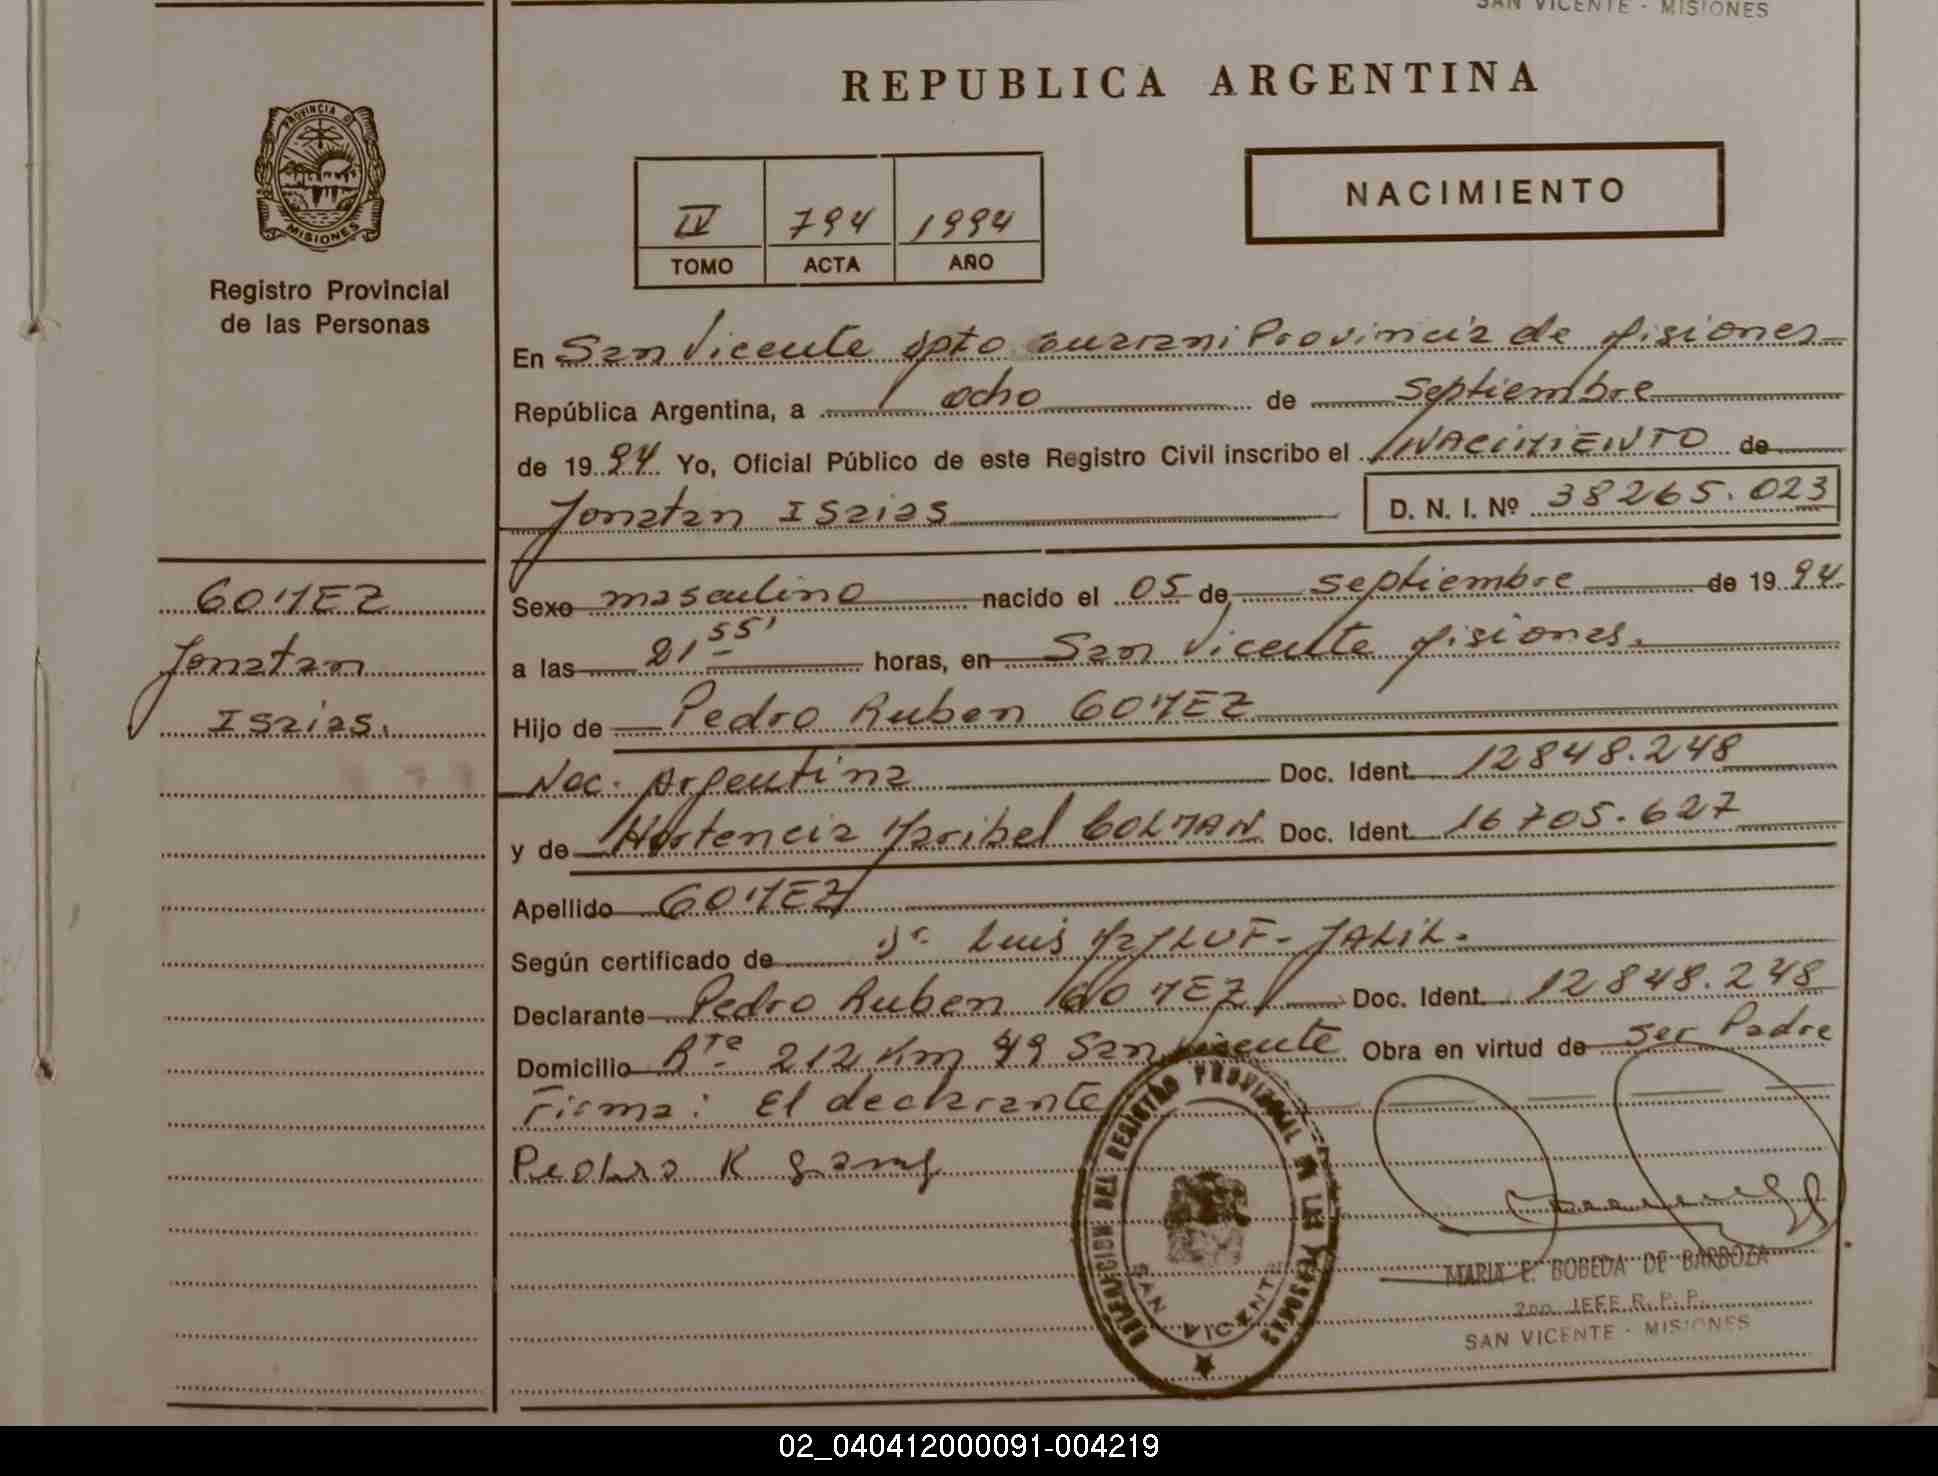 SAN VICENTE - MISIONES
REPUBLICA ARGENTINA
PROVINCIA DE
MISIONES
Registro Provincial
de las Personas
IV 794 1994
TOMO ACTA AÑO
NACIMIENTO
En San Vicente dpto Guarani Provincia de Misiones
República Argentina, a ocho de Septiembre
de 1994 Yo, Oficial Público de este Registro Civil inscribo el NACIMIENTO de
Jonatan Isaias
D. N. I. Nº 38265.023
GOMEZ
Jonatan
Isaias.
Sexo masculino nacido el 05 de septiembre de 1994
a las 21 55' horas, en San Vicente Misiones.
Hijo de Pedro Ruben GOMEZ
Nac. Argentina Doc. Ident. 12848.248
y de Hortencia Maribel COLMAN Doc. Ident. 16705.627
Apellido GOMEZ
Según certificado de Dr. Luis JALIL.
Declarante Pedro Ruben GOMEZ Doc. Ident. 12848.248
Domicilio Rta 212 Km 49 San Vicente Obra en virtud de ser Padre
Firma: El declarante
Pedro R
DEL REGISTRO PROVINCIAL DE LAS PERSONAS
SAN VICENTE
MARIA E. BOBEDA DE BARBOZA
2do. JEFE R. P. P.
SAN VICENTE - MISIONES
02_040412000091-004219